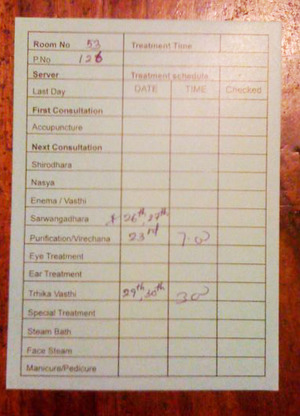 Room No 53 Treatment Time
P.No 126
Server Treatment schedule
Last Day DATE TIME Checked
First Consultation
Accupuncture
Next Consultation
Shirodhara
Nasya
Enema / Vasthi
Sarwangadhara 26th, 27th
Purification/Virechana 23rd 7.00
Eye Treatment
Ear Treatment
Trhika Vasthi 29th, 30th
Special Treatment
Steam Bath
Face Steam
Manicure/Pedicure